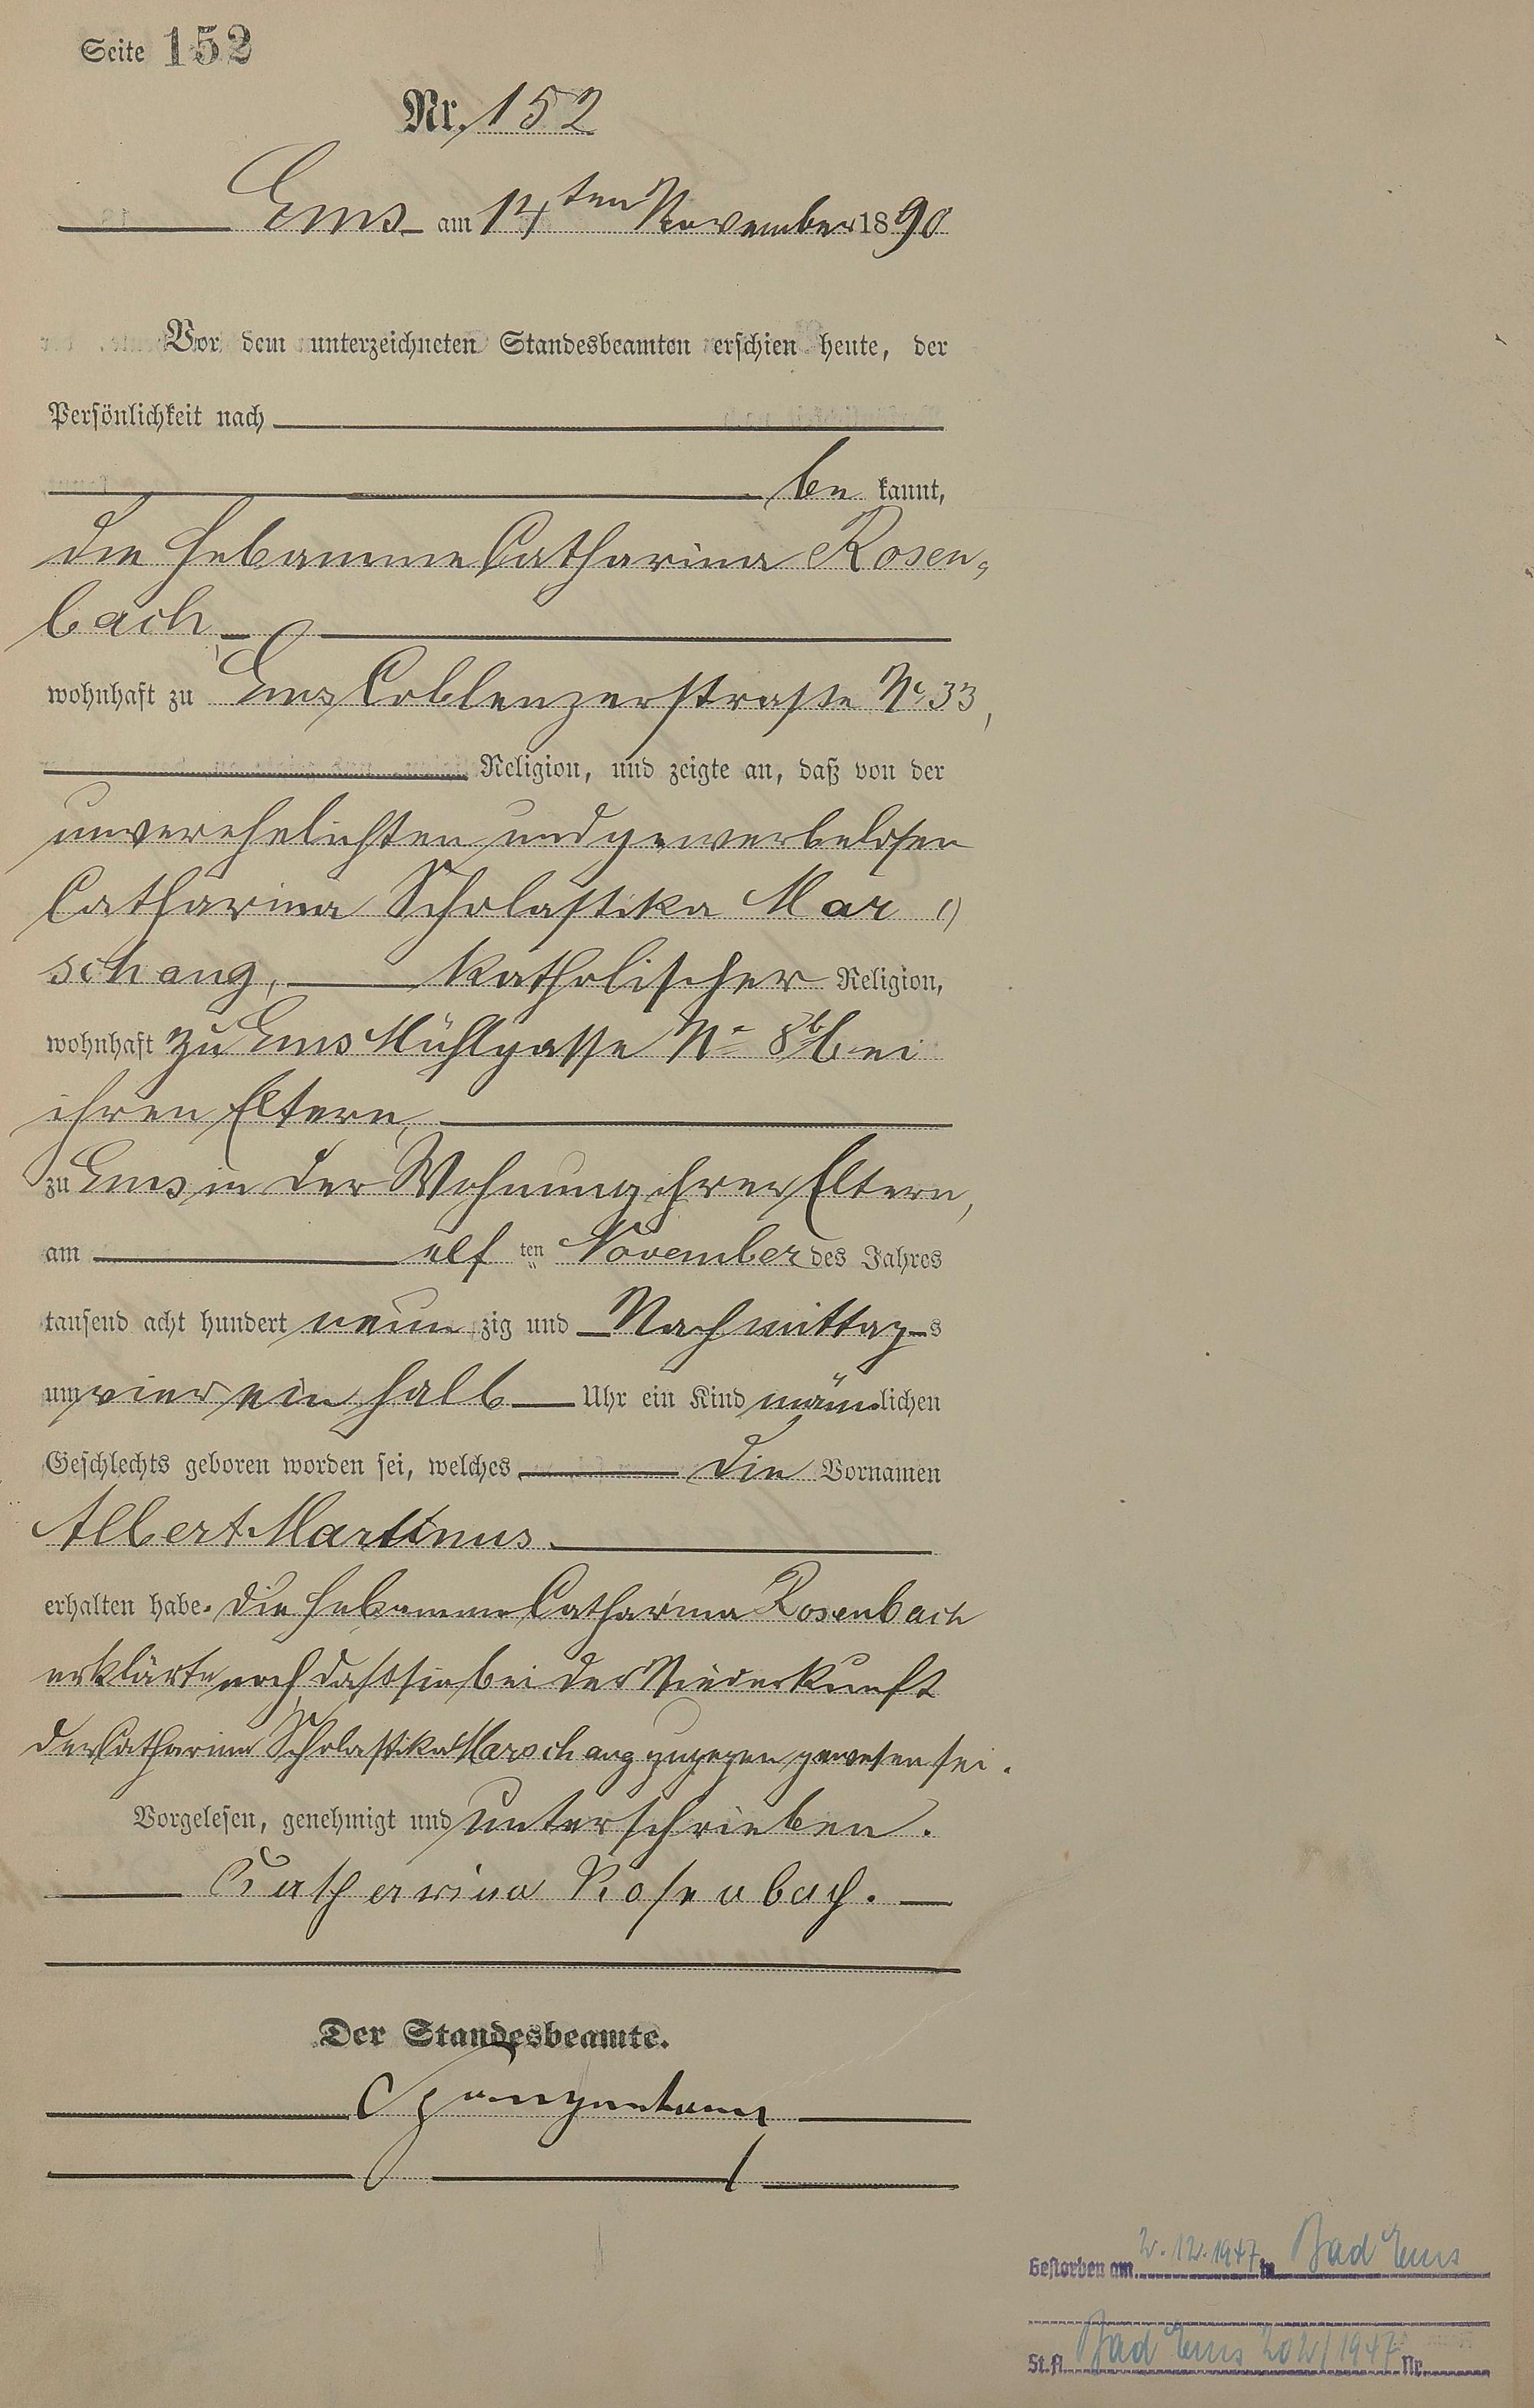 Seite 152
Nr. 152
Ems am 14ten November 1890
Vor dem unterzeichneten Standesbeamten erschien heute, der
Persönlichkeit nach
be kannt,
die Hebamme Catharina Rosen„
bach
wohnhaft zu Ems Coblenzerstraße No 33,
Religion, und zeigte an, daß von der
unverehelichten und gewerbelosen
Catharina Scholastika Mar „
schang, katholischer Religion,
wohnhaft zu Ems Mühlgasse No 8b bei
ihren Eltern,
zu Ems in der Wohnung ihrer Eltern,
am elf ten November des Jahres
tausend acht hundert neun zig und Nachmittag s
um vier ein halb Uhr ein Kind männlichen
Geschlechts geboren worden sei, welches die Vornamen
Albert Martinus.
erhalten habe. Die Hebamme Catharina Rosenbach
erklärte noch, daß sie bei der Niederkunft
der Catharina Scholastika Marschang zugegen gewesen sei.
Vorgelesen, genehmigt und unterschrieben.
Katharina Rosenbach.
Der Standesbeamte.
Gestorben am 2.12.1947 in Bad Ems
St.A. Bad Ems 202/1947 Nr.